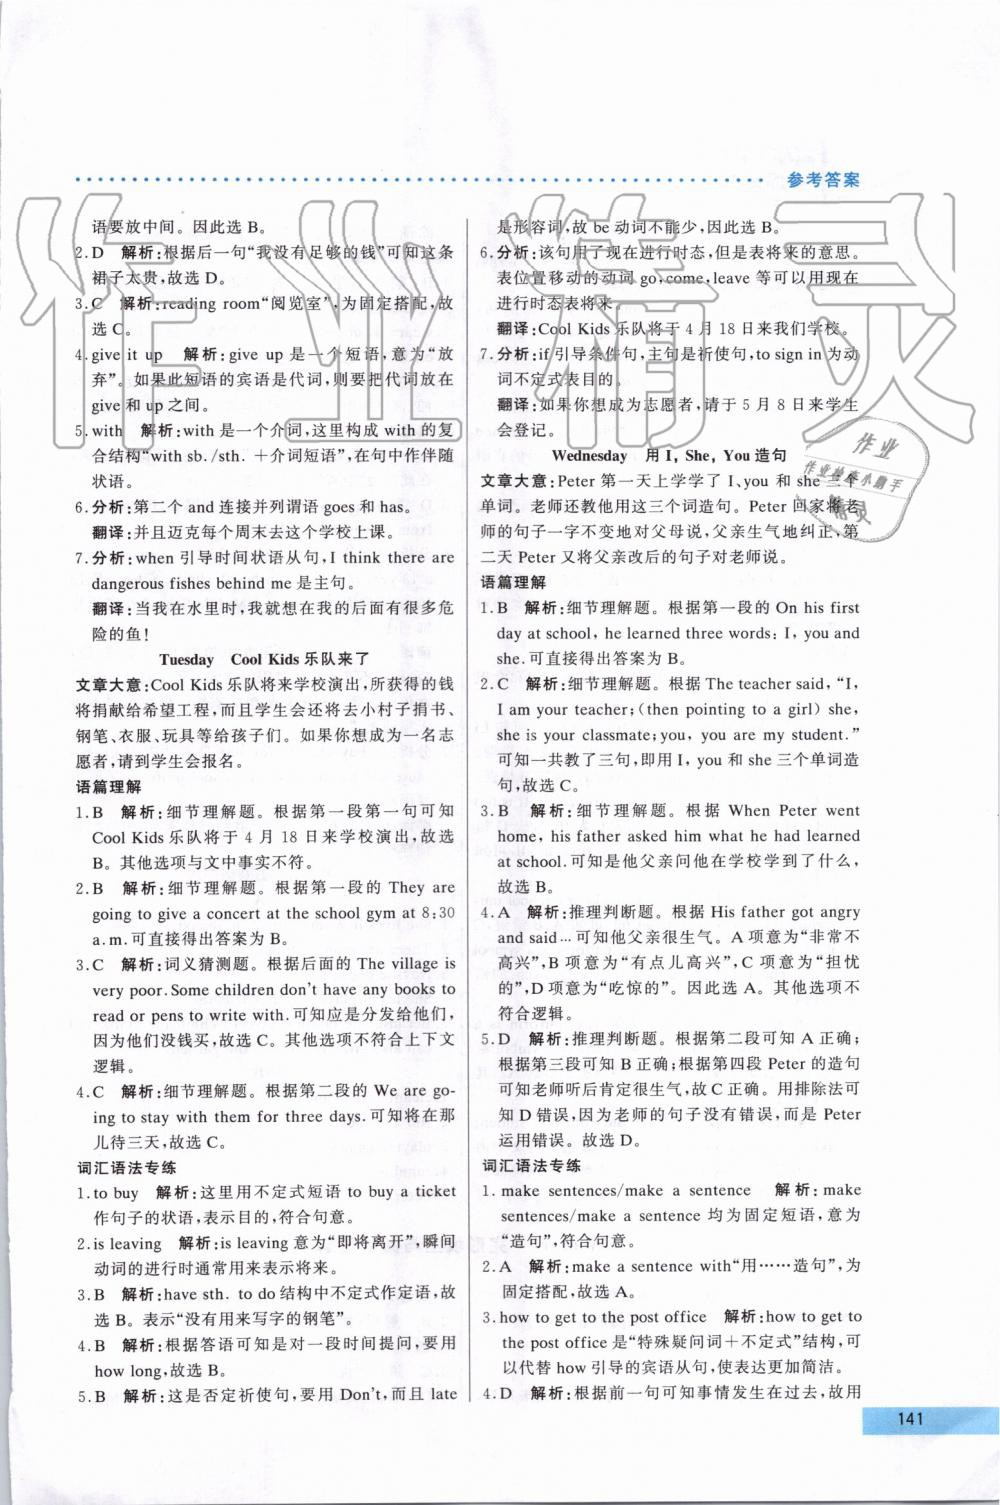 参考答案
语要放中间。因此选 B。
2. D 解析:根据后一句“我没有足够的钱”可知这条
裙子太贵,故选 D。
3. C 解析:reading room“阅览室”,为固定搭配,故
选 C。
4. give it up 解析:give up 是一个短语,意为“放
弃”。如果此短语的宾语是代词,则要把代词放在
give 和 up 之间。
5. with 解析:with 是一个介词,这里构成 with 的复
合结构“with sb./sth. ＋介词短语”,在句中作伴随
状语。
6. 分析:第二个 and 连接并列谓语 goes 和 has。
翻译:并且迈克每个周末去这个学校上课。
7. 分析:when 引导时间状语从句,I think there are
dangerous fishes behind me 是主句。
翻译:当我在水里时,我就想在我的后面有很多危
险的鱼!
Tuesday Cool Kids 乐队来了
文章大意:Cool Kids 乐队将来学校演出,所获得的钱
将捐献给希望工程,而且学生会还将去小村子捐书、
钢笔、衣服、玩具等给孩子们。如果你想成为一名志
愿者,请到学生会报名。
语篇理解
1. B 解析:细节理解题。根据第一段第一句可知
Cool Kids 乐队将于 4 月 18 日来学校演出,故选
B。其他选项与文中事实不符。
2. B 解析:细节理解题。根据第一段的 They are
going to give a concert at the school gym at 8:30
a. m. 可直接得出答案为 B。
3. C 解析:词义猜测题。根据后面的 The village is
very poor. Some children don't have any books to
read or pens to write with. 可知应是分发给他们,
因为他们没钱买,故选 C。其他选项不符合上下文
逻辑。
4. C 解析:细节理解题。根据第二段的 We are go-
ing to stay with them for three days. 可知将在那
儿待三天,故选 C。
词汇语法专练
1. to buy 解析:这里用不定式短语 to buy a ticket
作句子的状语,表示目的,符合句意。
2. is leaving 解析:is leaving 意为“即将离开”,瞬间
动词的进行时通常用来表示将来。
3. B 解析:have sth. to do 结构中不定式作定语,故
选 B。表示“没有用来写字的钢笔”。
4. B 解析:根据答语可知是对一段时间提问,要用
how long,故选 B。
5. B 解析:这是否定祈使句,要用 Don't,而且 late
是形容词,故 be 动词不能少,因此选 B。
6. 分析:该句用了现在进行时态,但是表将来的意思。
表位置移动的动词 go,come,leave 等可以用现在
进行时态表将来。
翻译:Cool Kids 乐队将于 4 月 18 日来我们学校。
7. 分析:if 引导条件句,主句是祈使句,to sign in 为动
词不定式表目的。
翻译:如果你想成为志愿者,请于 5 月 8 日来学生
会登记。
Wednesday 用 I, She, You 造句
文章大意:Peter 第一天上学学了 I、you 和 she 三个
单词。老师还教他用这三个词造句。Peter 回家将老
师的句子一字不变地对父母说,父亲生气地纠正,第
二天 Peter 又将父亲改后的句子对老师说。
语篇理解
1. B 解析:细节理解题。根据第一段的 On his first
day at school, he learned three words: I, you and
she. 可直接得出答案为 B。
2. C 解析:细节理解题。根据 The teacher said, “I,
I am your teacher;(then pointing to a girl) she,
she is your classmate;you, you are my student.”
可知一共教了三句,即用 I、you 和 she 三个单词造
句,故选 C。
3. B 解析:细节理解题。根据 When Peter went
home, his father asked him what he had learned
at school. 可知是他父亲问他在学校学到了什么,
故选 B。
4. A 解析:推理判断题。根据 His father got angry
and said… 可知他父亲很生气。A 项意为“非常不
高兴”,B 项意为“有点儿高兴”,C 项意为“担忧
的”,D 项意为“吃惊的”。因此选 A。其他选项不
符合逻辑。
5. D 解析:推理判断题。根据第二段可知 A 正确;
根据第三段可知 B 正确;根据第四段 Peter 的造句
可知老师听后肯定很生气,故 C 正确。用排除法可
知 D 错误,因为老师的句子没有错误,而是 Peter
运用错误。故选 D。
词汇语法专练
1. make sentences/make a sentence 解析:make
sentences/make a sentence 均为固定短语,意为
“造句”,符合句意。
2. A 解析:make a sentence with“用……造句”,为
固定搭配,故选 A。
3. how to get to the post office 解析:how to get to
the post office 是“特殊疑问词＋不定式”结构,可
以代替 how 引导的宾语从句,使表达更加简洁。
4. D 解析:根据前一句可知事情发生在过去,故用
141
作业精灵
作业
作业检查小助手
精灵